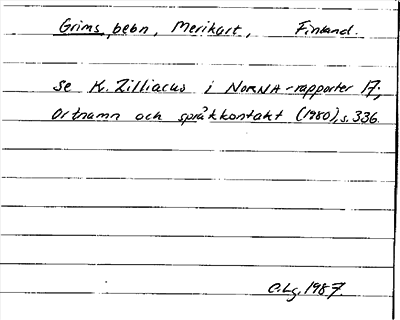 Grims, bebn, Merikart, Finland.
se K. Zilliacus i NORNA-rapporter 17,
Ortnamn och språkkontakt (1980), s. 336.
C.Lg. 1987.